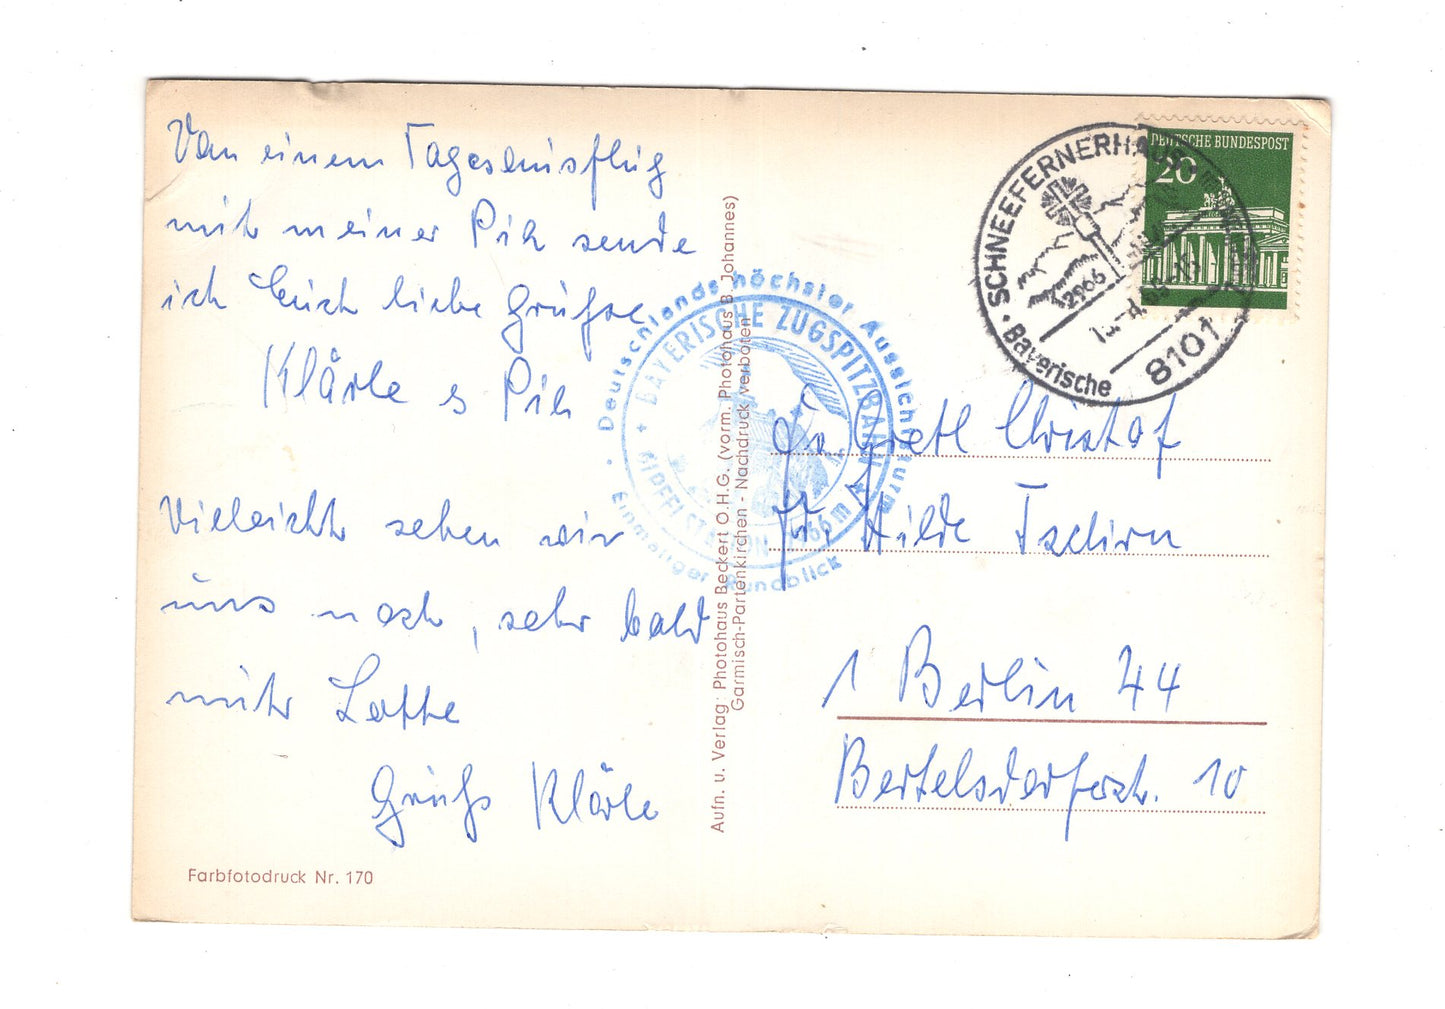 Von einem Tagesausflug
mit meiner Pik sende
ich Euch liebe Grüße
Klärle & Pik
Vielleicht sehen wir
uns noch, sehr bald
mit Lotte
Gruß Klärle
Farbfotodruck Nr. 170
Aufn. u. Verlag: Photohaus Beckert O.H.G. (vorm. Photohaus B. Johannes)
Garmisch-Partenkirchen - Nachdruck verboten
Deutschlands höchster Aussichtsturm
Einmaliger Rundblick
BAYERISCHE ZUGSPITZBAHN
GIPFELSTATION 2966 m
DEUTSCHE BUNDESPOST
20
SCHNEEFERNERHAUS
2966
8101
Bayerische
Gretl Christof
Hilde Tschirn
1 Berlin 44
Bertelsdorferstr. 10